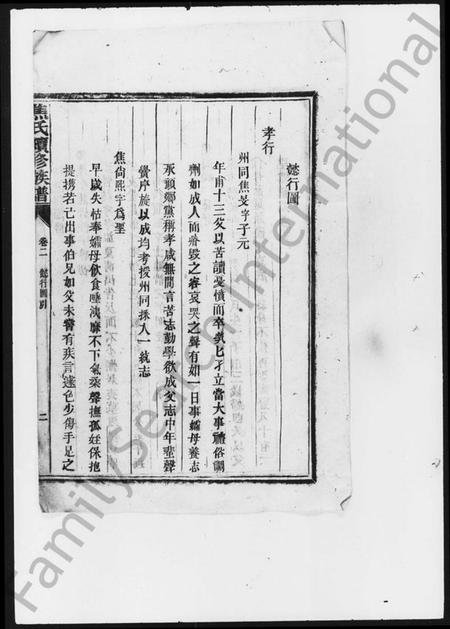 懿行圖
孝行
州同焦 字子元
年甫十三父以苦讀憂憤而卒煢煢孑立當大事禮俗
劑如成人而瘠毀之容哀哭之聲有如一日事孀母養志
承顏鄉黨稱孝咸無間言苦志勤學欲成父志中年蜚聲
黌序旋以成均考授州同採入一統志
焦尚熙字為聖
早歲失怙奉孀母飲食 浣靡不下氣柔聲撫孤姪保抱
提携若己出事伯兄如父未嘗有疾言遽色少傷手足之
焦氏續修族譜
卷二
懿行圖引
二
FamilySearch International